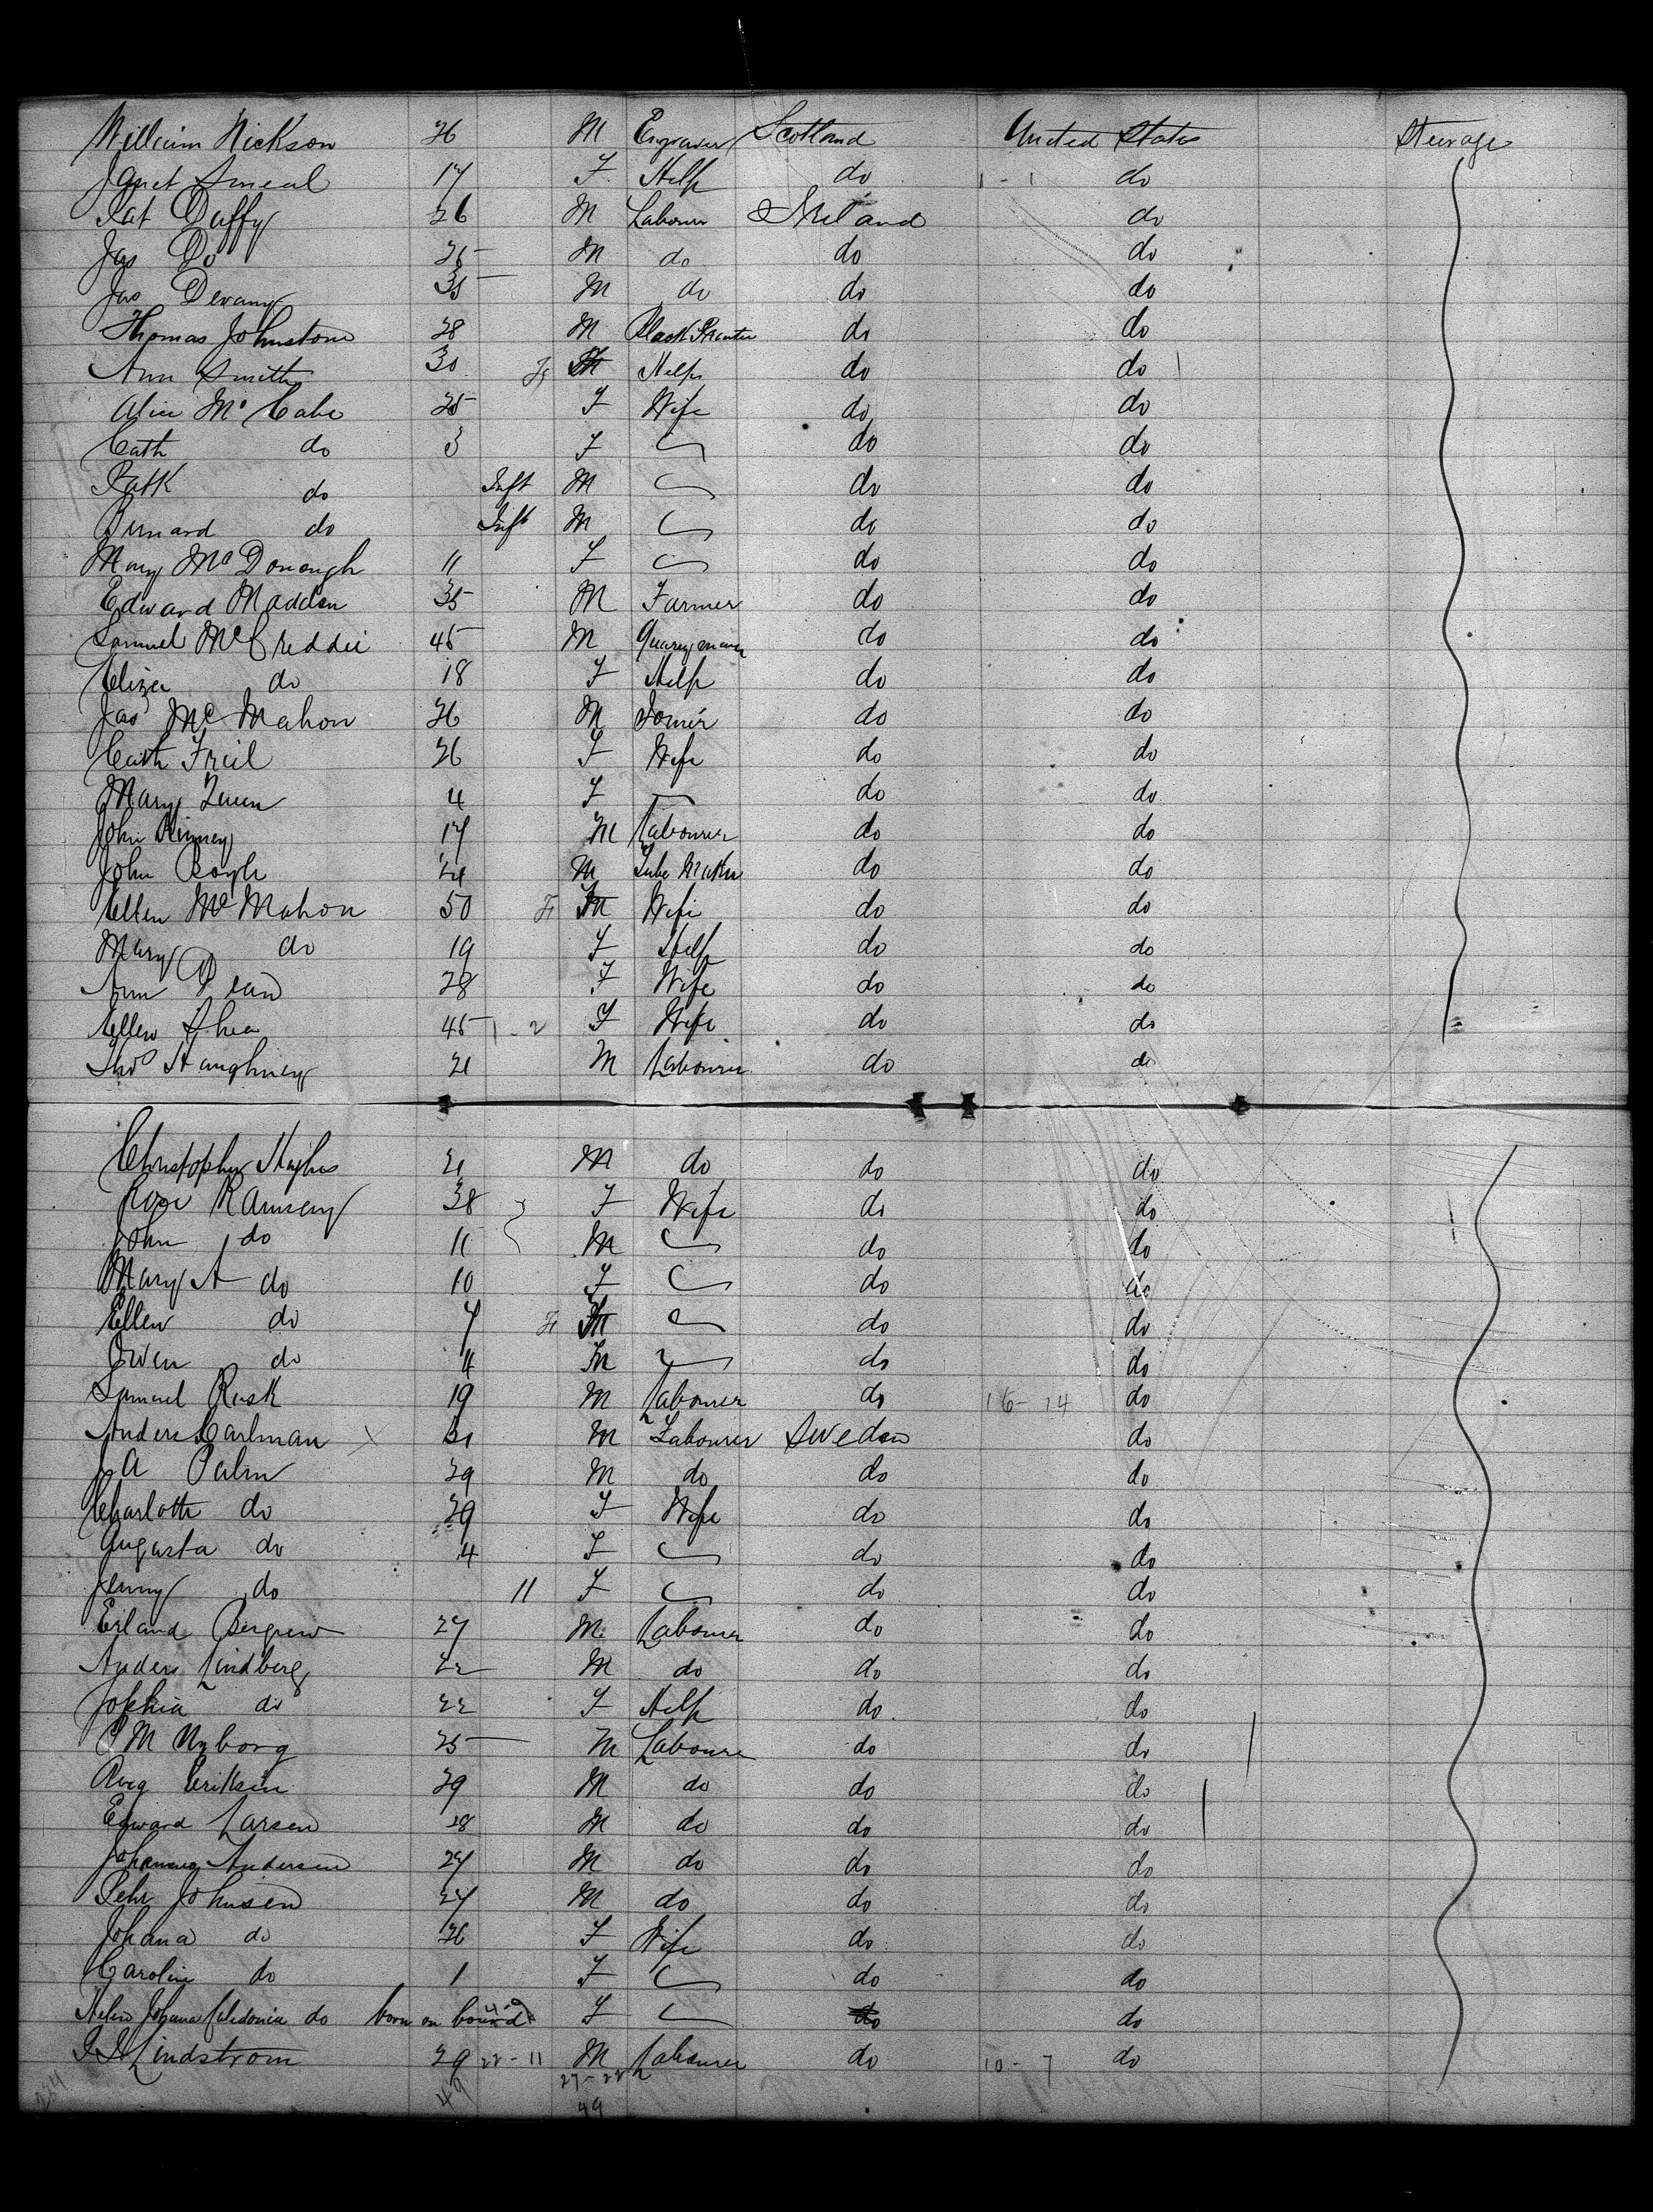 William Nickson 26 M Engraver Scotland United States Steerage
Janet Smeal 17 F Help do 1 - 1 do
Pat Duffy 26 M Labourer Ireland do
Jas Do 25 M do do do
Jas Devany 35 M do do do
Thomas Johnstone 28 M do do
Ann Smith 30 F Help do do
Alice Mc Cabe 25 F Wife do do
Cath do 3 F do do
Patk do Inft M do do
Bernard do Inft M do do
Mary McDonough 11 F do do
Edward Madden 35 M Farmer do do
Samuel McCreddie 45 M Quarryman do do
Eliza do 18 F Help do do
Jas McMahon 26 M Joiner do do
Cath Friel 26 F Wife do do
Mary Queen 4 F do do
John Kinney 17 M Labourer do do
John Boyle 24 M Tube Maker do do
Ellen McMahon 50 F Wife do do
Mary do 19 F Help do do
Ann 28 F Wife do do
Ellen Shea 45 1 - 2 F Wife do do
Thos Haughney 21 M Labourer do do
Christopher Hughes 21 M do do do
Rose Ramsey 38 F Wife do do
John do 11 M do do
Mary A do 10 F do do
Ellen do 7 F do do
Owen do 4 M do do
Samuel Rusk 19 M Labourer do 16 - 14 do
Anders Carlman X 21 M Labourer Sweden do
J A Palm 29 M do do do
Charlotte do 29 F Wife do do
Augusta do 4 F do do
Jenny do 11 F do do
Erland Bergren 27 M Labourer do do
Anders Lindberg 22 M do do do
Sophia do 22 F Help do do
P M Nyborg 25 M Labourer do do
Aug Eriksen 29 M do do do
Edward Larsen 28 M do do do
Johannes Andersen 27 M do do do
Pehr Johnsen 27 M do do do
Johana do 26 F Wife do do
Caroline do 1 F do do
Helen Johana Caledonia do born on board F do do
Lindstrom 29 22 - 11 M Labourer do 10 - 7 do
49 27 - 22
49